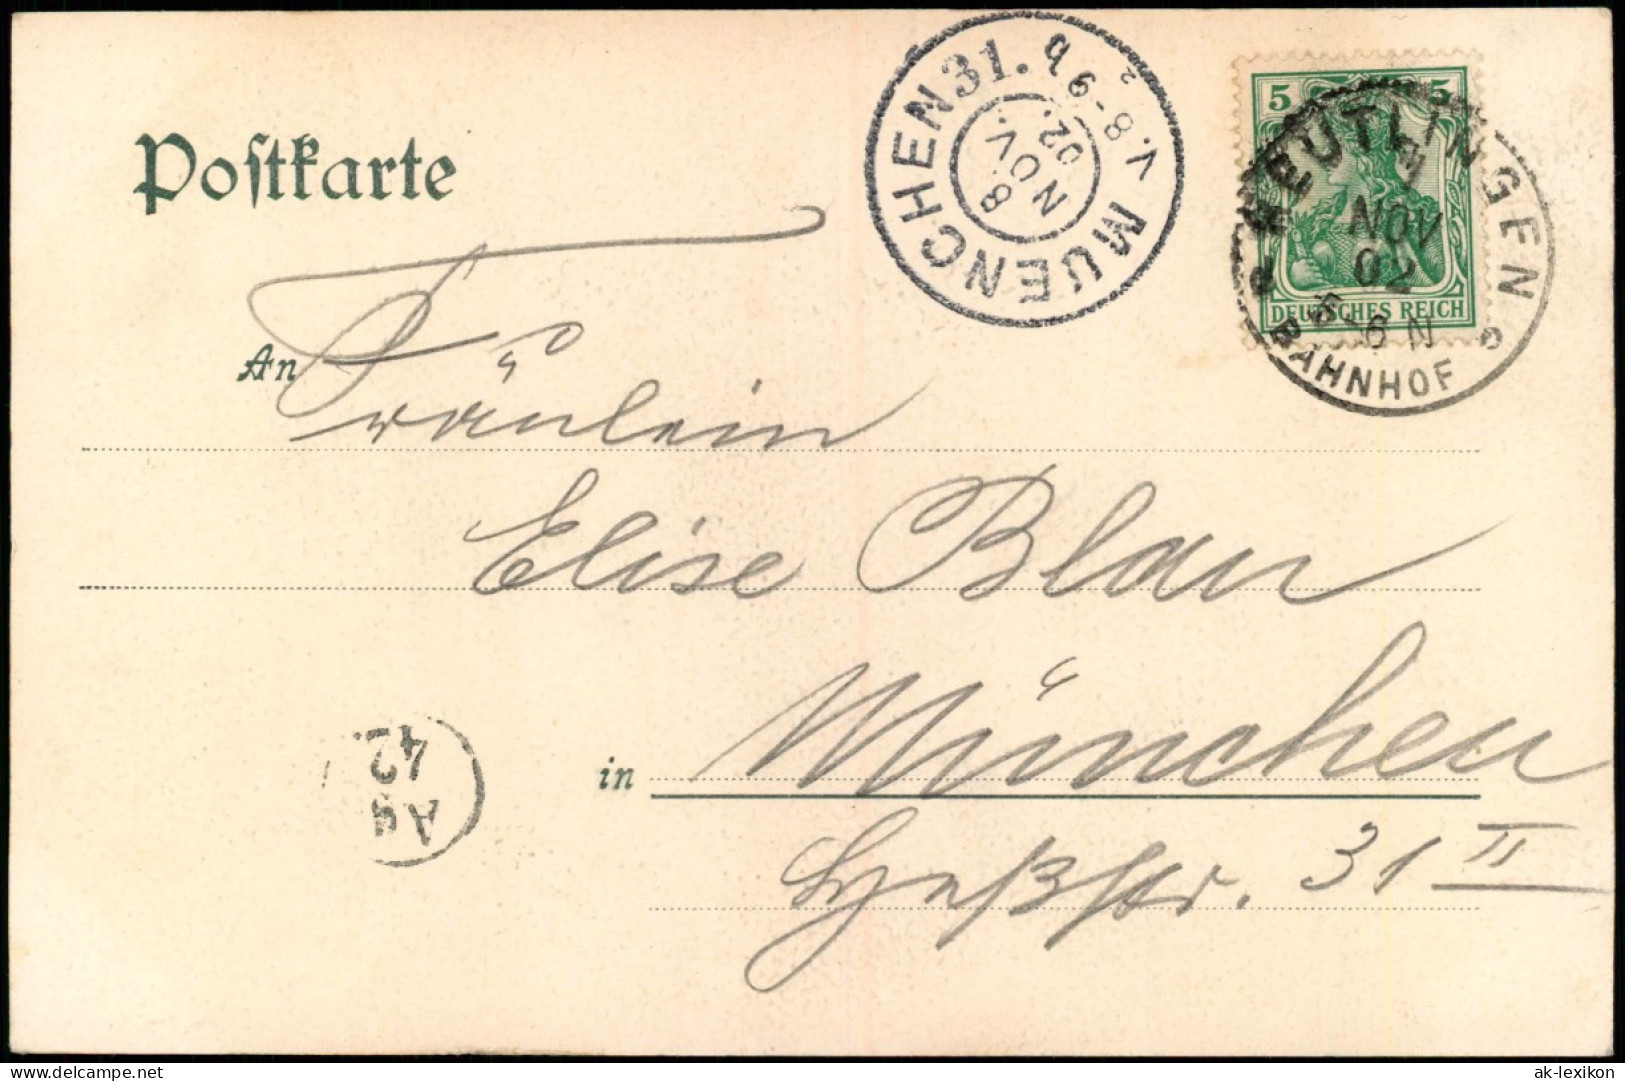 Postkarte
MUENCHEN 31. b
V. 8-9
8.
NOV.
02.
5 5
DEUTSCHES REICH
REUTLINGEN
7
NOV
02
5-6 N
BAHNHOF
An Fräulein
Elise Blau
in München
Heßstr. 31 II
Ag
42
delcampe.net
ak-lexikon